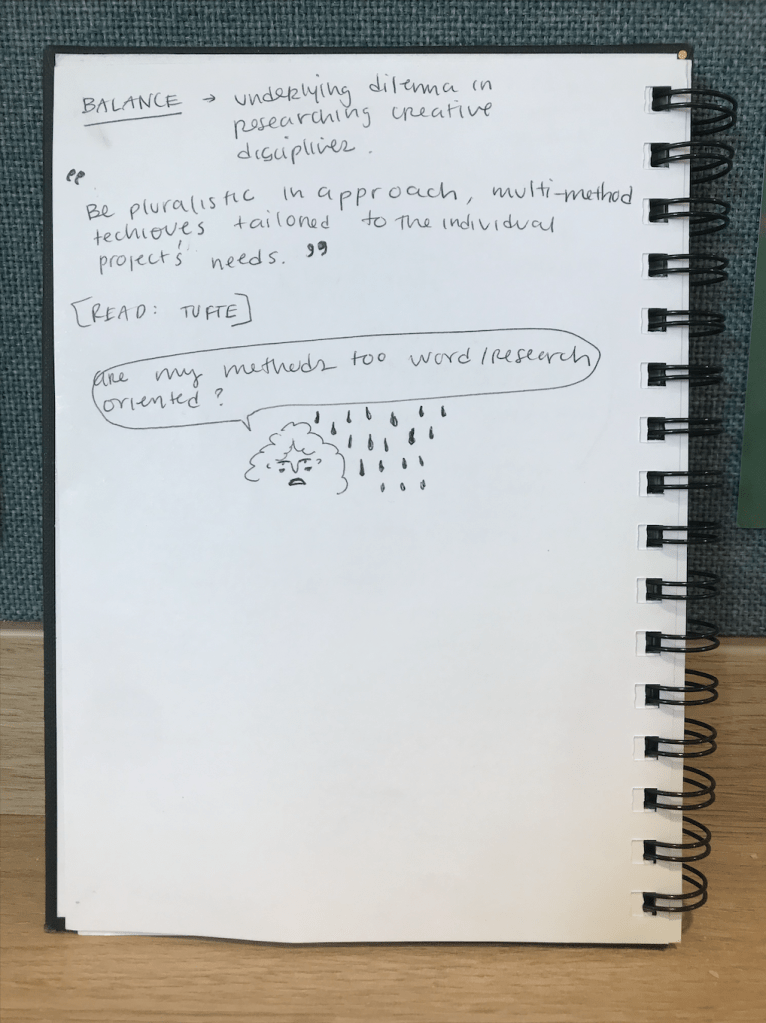 BALANCE → underlying dilemma in
researching creative
disciplines.
"Be pluralistic in approach, multi-method
techiques tailored to the individual
project's needs."
[READ: TUFTE]
are my methods too word/research
oriented?